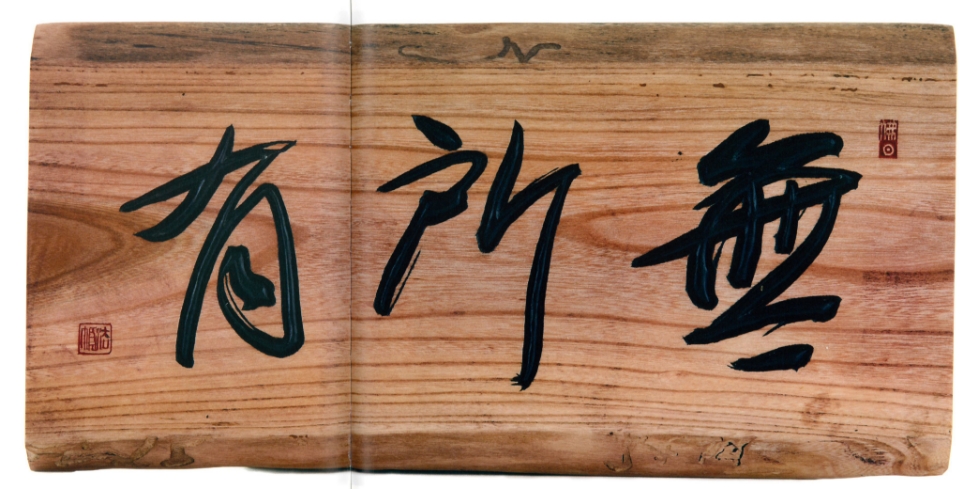 無所有